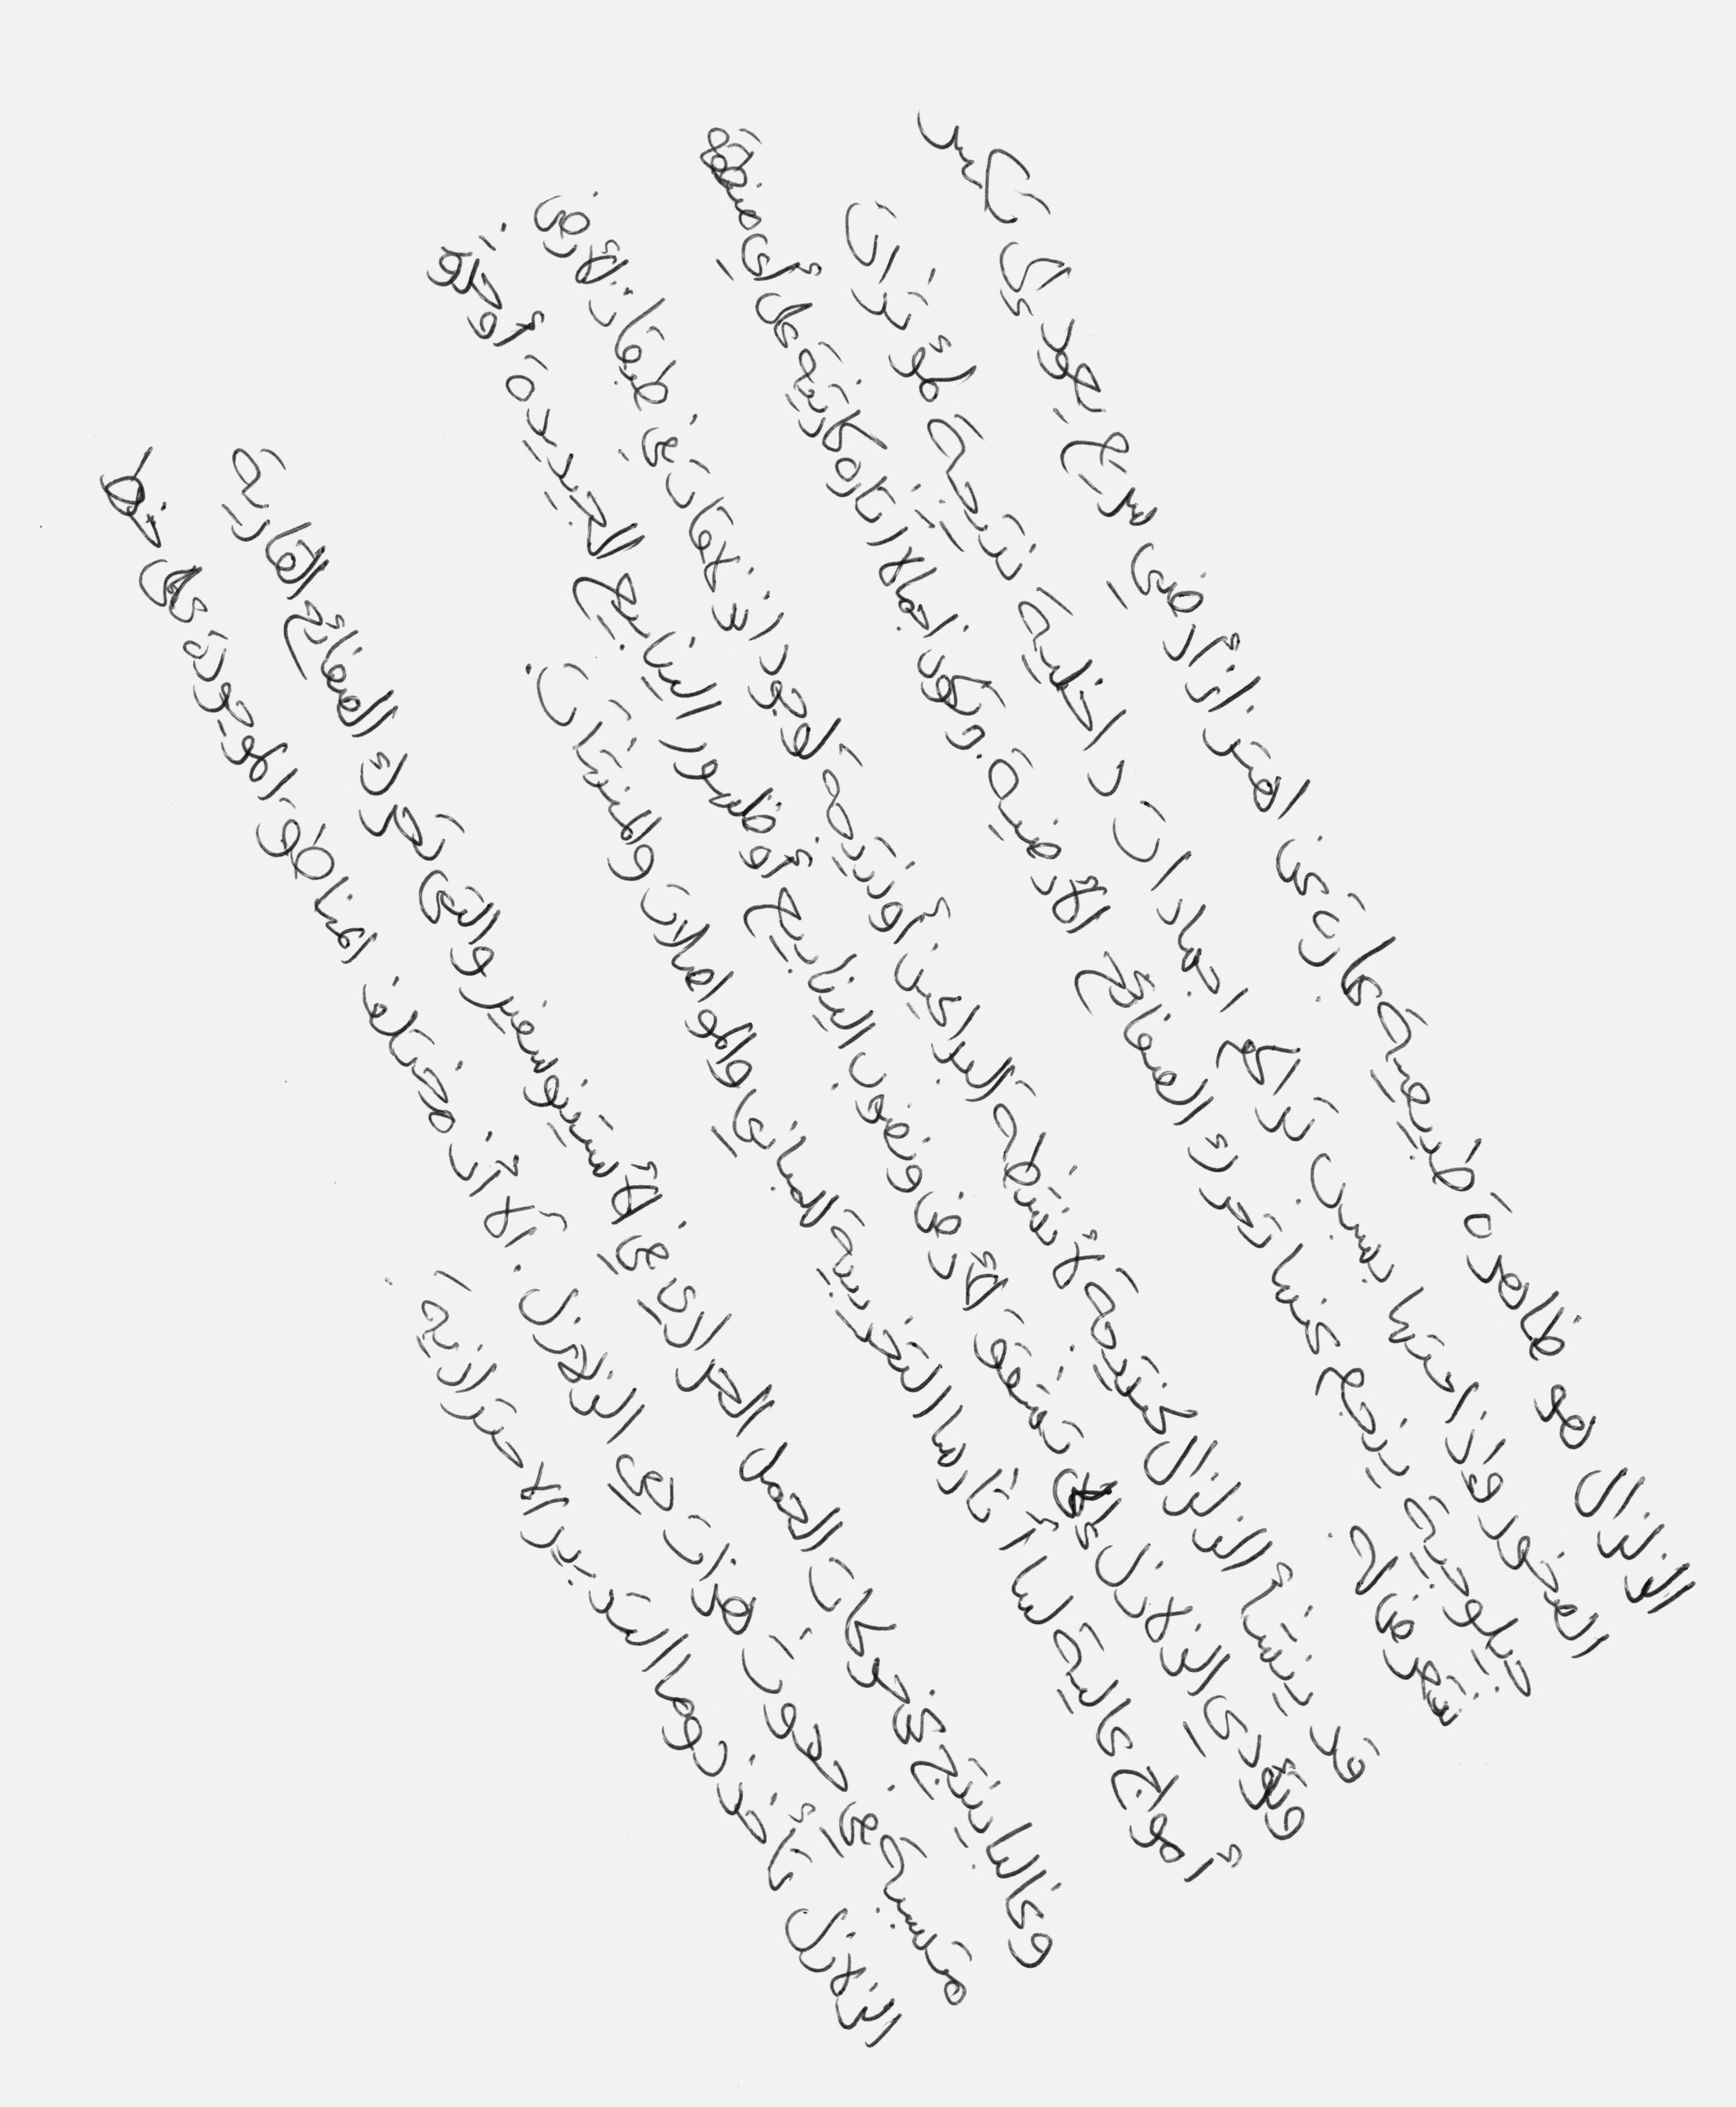 الزلزال هو ظاهرة طبيعية عبارة عن اهتزاز أرضي سريع يعود إلى تكسر
الصخور وإزاحتها بسبب تراكم اجهادات داخلية نتيجة لمؤثرات
جيلوجية ينجم عنها تحرك الصفائح الأرضية. وتكون اجمالا آثاره كارثية على أي منطقة
تتعرض له.
قد ينشأ الزلزال كنتيجة لأنشطة البراكين أو نتيجة لوجود انزلاقات في طبقات الأرض
وتؤدي الزلازل إلى تشقق الأرض ونضوب الينابيع أو ظهور الينابيع الجديدة أو حدوث
أمواج عالية لها آثارها التخريبية للمباني والمواصلات والمنشآت.
وغالبا ينتج عن حركات الحمل الحراري في الأستينوسفير والتي تحرك الصفائح القارية
متسببة في حدوث هزات هي الزلازل. ألا أن مختلف المناطق الموجودة على خط
الزلازل تأخذ دوما التدبير الاحترازية.